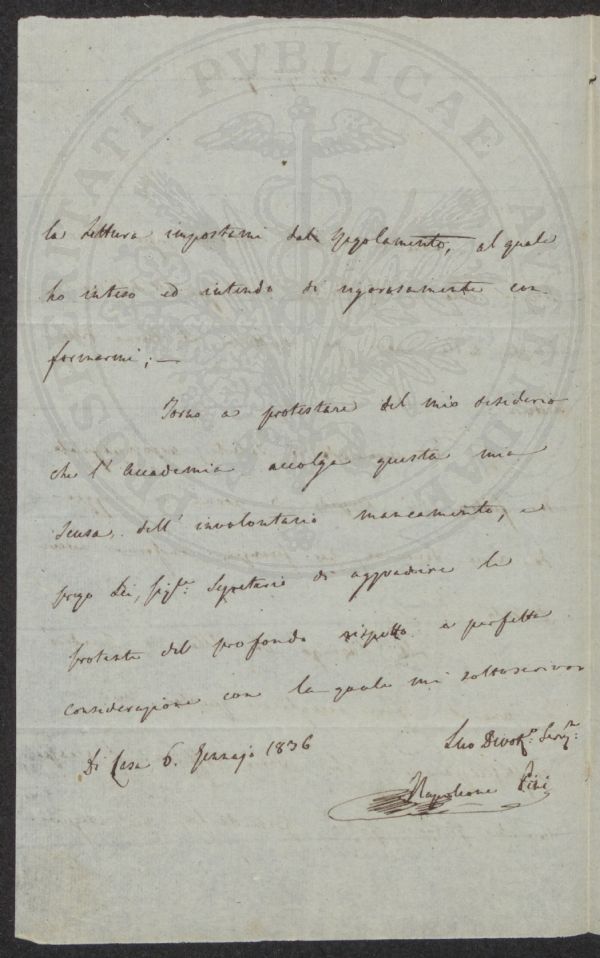 PROSPERITATI PVBLICAE AVGENDAE
la Lettura impostami dal Regolamento, al quale
ho inteso ed intendo di rigorosamente con-
formarmi; —
Torno a protestare del mio desiderio
che l'Accademia accolga questa mia
scusa dell'involontario mancamento, e
prego Lei, Sigr. Segretario di aggradire le
proteste del profondo rispetto e perfetta
considerazione con la quale mi sottoscrivo
Di Casa 6. Gennajo 1836
Suo Devotmo. Servre.
Napoleone Pini